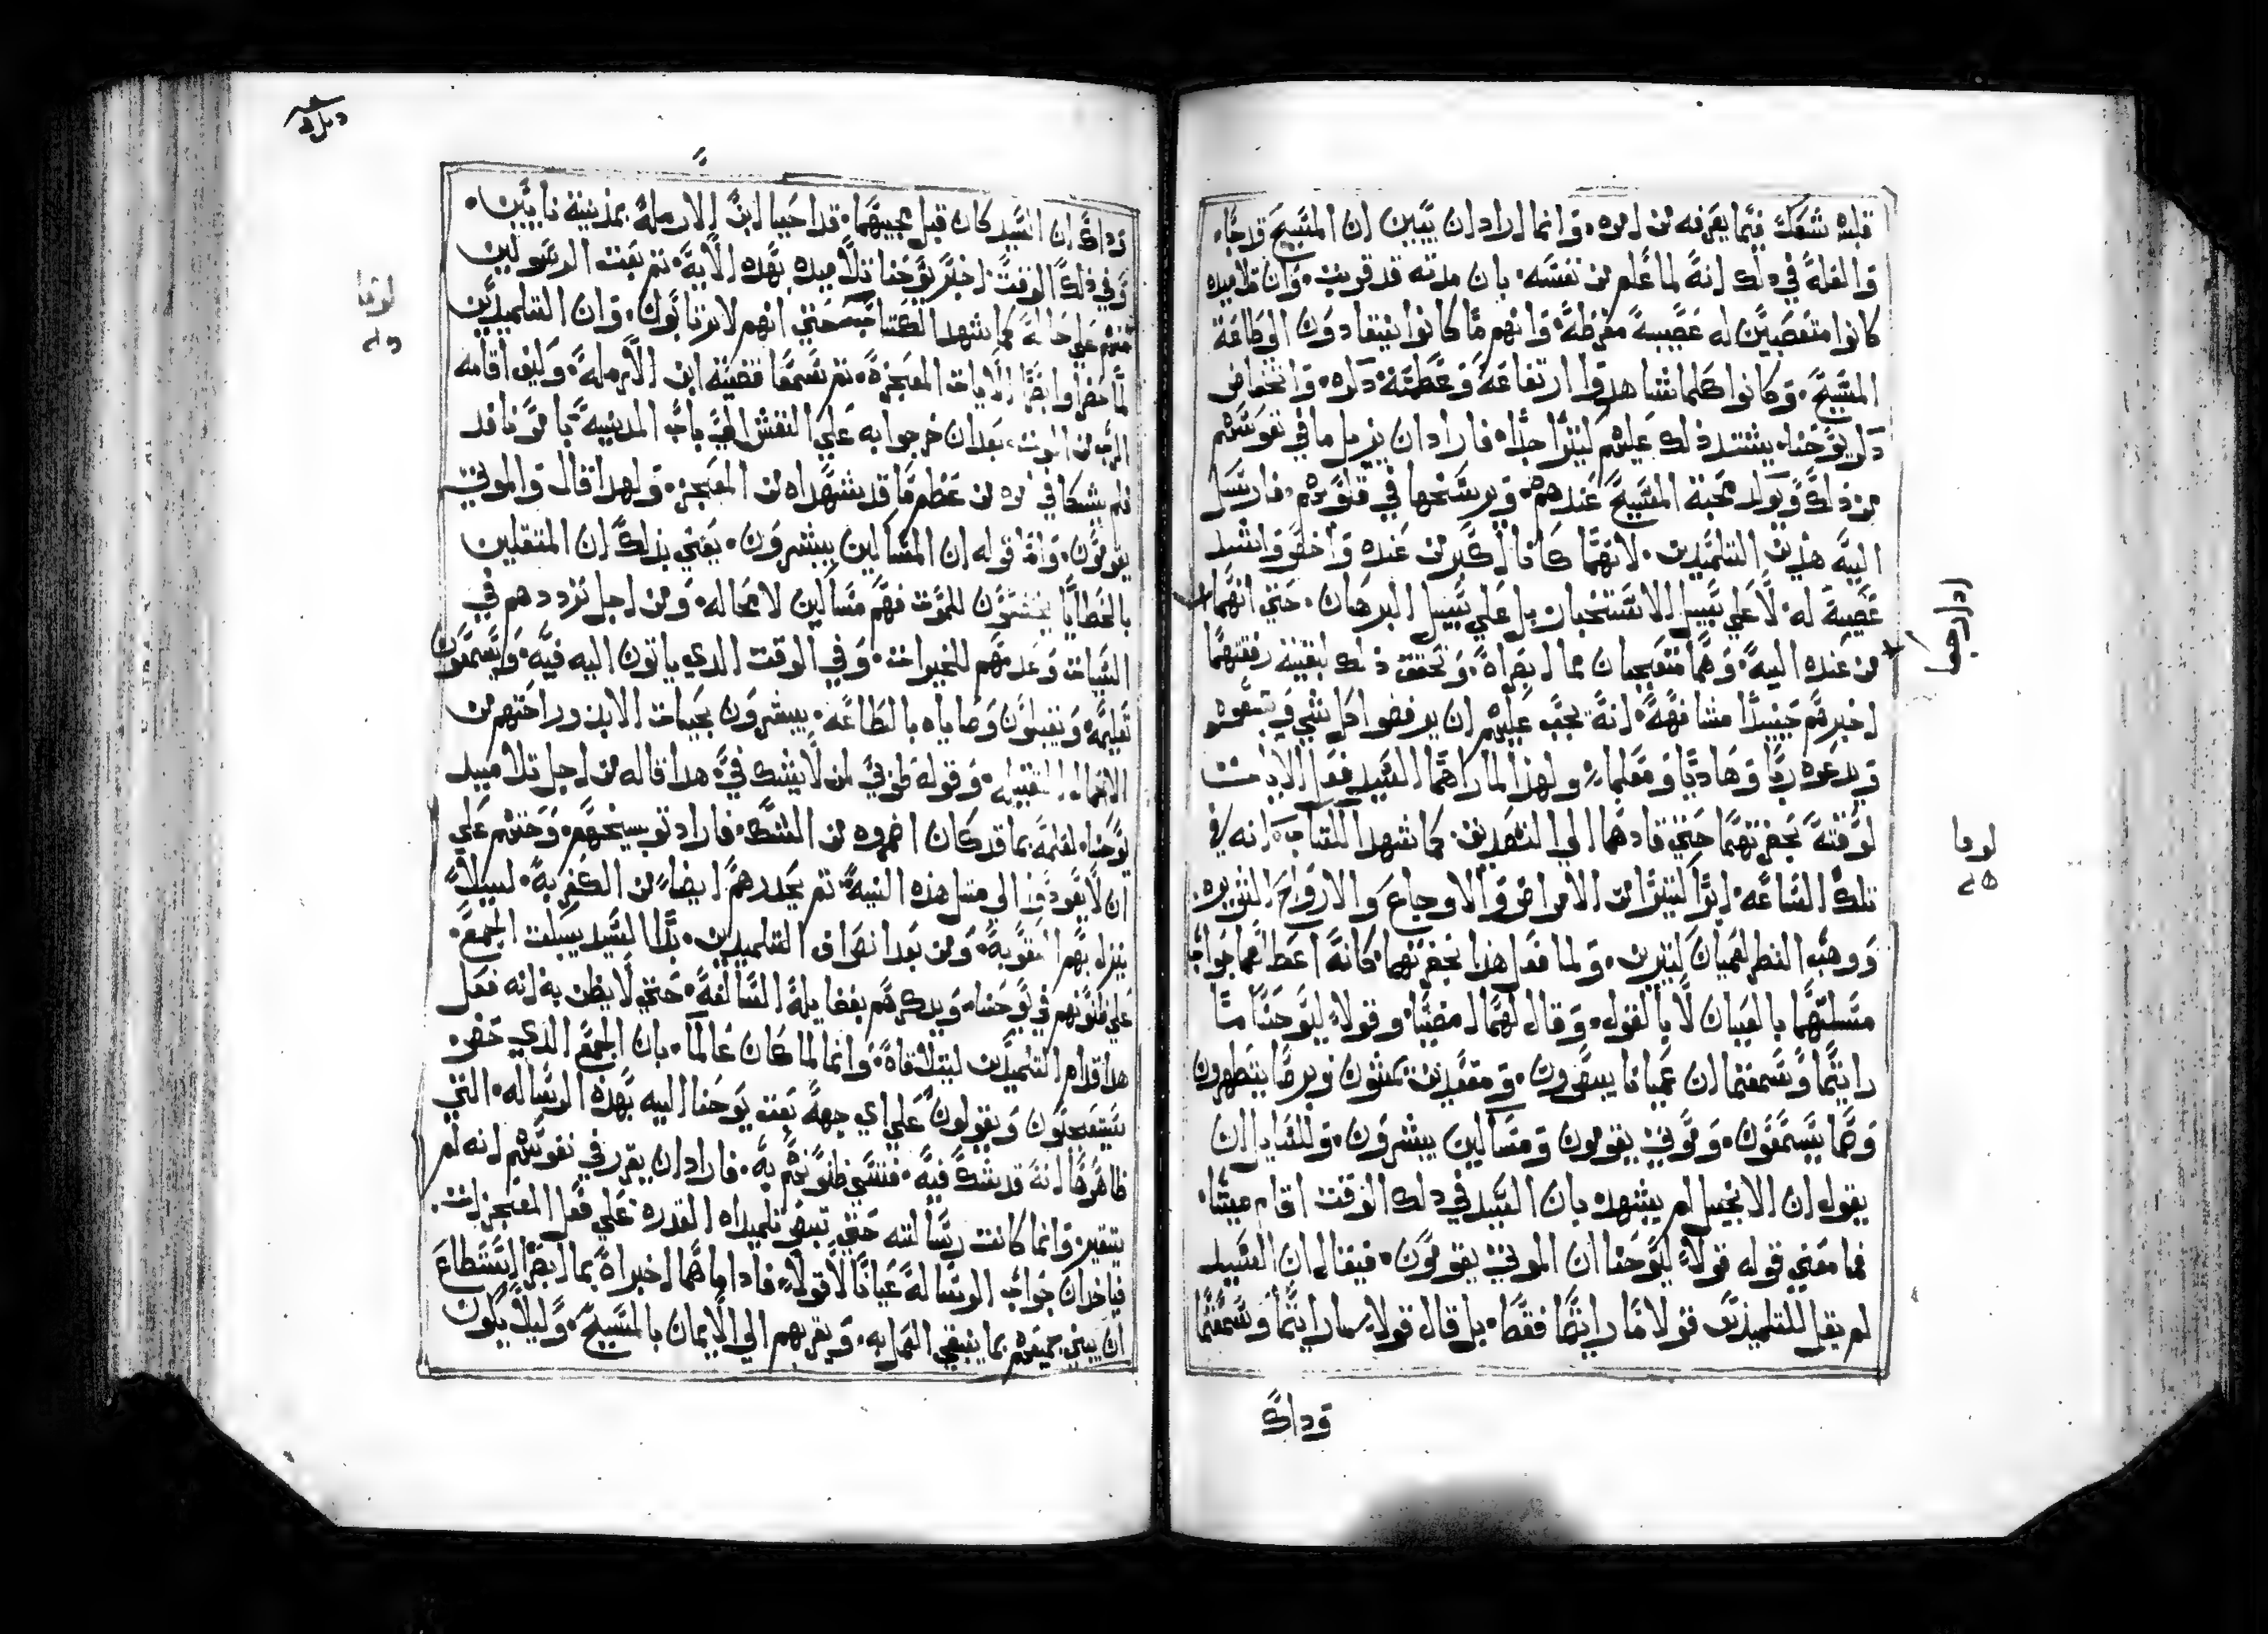 قلبه شك فيما يعرفه من امره. وانما اراد ان يبين ان المسيح قد جاء.
والعلة في ذلك انه لما علم من نفسه. بان مدته قد قربت. وان تلاميده
كانوا متعصبين له عصبية مفرطة. وانهم ما كانوا ينقادون الي طاعة
المسيح. وكانوا كلما شاهدوا ارتفاعه وعظمة دكره. وانخفاض
دكر يوحنا. يشتد ذلك عليهم كثيرا جدا. فاراد ان يزيل ما في نفوسهم
من ذلك ويولد محبة المسيح عندهم. ويرسخها في قلوبهم. فارسل
اليه هذين التلميدين. لانهما كانا اكبر من عنده واخص واشد
عصبية له. لا علي سبيل الاستخبار بل علي سبيل البرهان. حتي انهما
من عنده اليه. وهما متعجبان مما ابصراه. وتحقق ذلك لبقية رفقتهما
اخبرهم حينيدا مشافهة. انه يجب عليهم ان يرفضوا كل شي ويتبعوه
ويدعوه ربا وهاديا ومعلما. ولهذا لما راهما السيد فعل الايات
لوقته بحضرتهما حتي قادهما الي التصديق. كما شهد الكتاب انه في
تلك الساعه. ابرا كثيرا من الامراض والاوجاع والارواح الشريره.
ووهب النظر لعميان كثيرين. ولما فعل هذا بحضرتهما. كانه اعطاهما جواب
مسلتهما بالعيان لا بالقول. وقال لهما امضيا. وقولا ليوحنا ما
رايتما وسمعتما ان عميانا يبصرون. ومقعدين يمشون وبرصا يتطهرون
وصما يسمعون. وموتي يقومون ومساكين يبشرون. وللسايل ان
يقول ان الانجيل لم يشهد بان السيد في دلك الوقت اقام ميتا.
فما معني قوله قولا ليوحنا ان الموتي يقومون. فيقال ان السيد
لم يقل للتلميدين قولا ما رايتما فقط. بل قال قولا بما رايتما وسمعتما
ادا رجعا
لوقا
وداك
وداك ان السيد كان قبل مجييهما. قد احيا ابن الارمله بمدينة نايين.
وفي دلك الوقت اخبر يوحنا تلاميده بهده الاية. تم بعت الرسولين
علي حاله كما شهد الكتاب حتي انهم لا يرتابون. وان التلميدين
لما حضرا وابصرا الايات المعجزة. تم سمعا قضية ابن الارملة. وكيف اقامه
الرب من الموت. بعد ان خرجوا به علي النعش الي باب المدينة بامر نافد
فلم يشكا في من عظم ما قد شهداه من المعجز. ولهدا قال والموتي
يقومون. واما قوله ان المساكين يبشرون. يعني بذلك ان المتقلين
بالخطايا يخشون الموت فهم مساكين لا محاله. ومن اجل ترددهم في
السيات وعدمهم للخيرات. وفي الوقت الدي ياتون اليه فيه. ويسمعون
تعليمه ويقبلون وصاياه بالطاعه. يبشرون بحيات الابد وراحتهم من
الاحمال التقيله. وقوله طوبي لمن لا يشك في. هدا قاله من اجل تلاميد
يوحنا. لعلمه بما قد كان اضمروه من الشك. فاراد توبيخهم. وحتهم علي
ان لا يعودوا الي متل هذه النية. تم يحدرهم ايضا من الكفر به. لييلا
ينزل بهم العقوبة. ومن بعد انصراف التلميدين. بدا السيد يبكت الجمع.
علي ظنونهم في يوحنا. ويدكرهم بفضايله السالفة. حتي لا يظن به انه فعل
هدا قدام التلميدين ليتلافاه. وانما لما كان عالما. بان الجمع الدي حضر.
سيتفكرون ويقولون علي اي جهة بعت يوحنا اليه بهذه الرساله. التي
ظاهرها انه قد شك فيه. فتسي ظنونهم به. فاراد ان يقرر في نفوسهم انه لم
يتغير. وانما كانت رسالته حتي تبصر تلميداه القدره علي فعل المعجزات.
فياخدان جواب الرسالة عيانا لا قولا. فادا ما هما اخبراه بما ابصرا استطاع
ان يبني جميعهم بما ينبغي العمل به. ويقربهم الي الايمان بالمسيح. وليلا يكون
لوقا